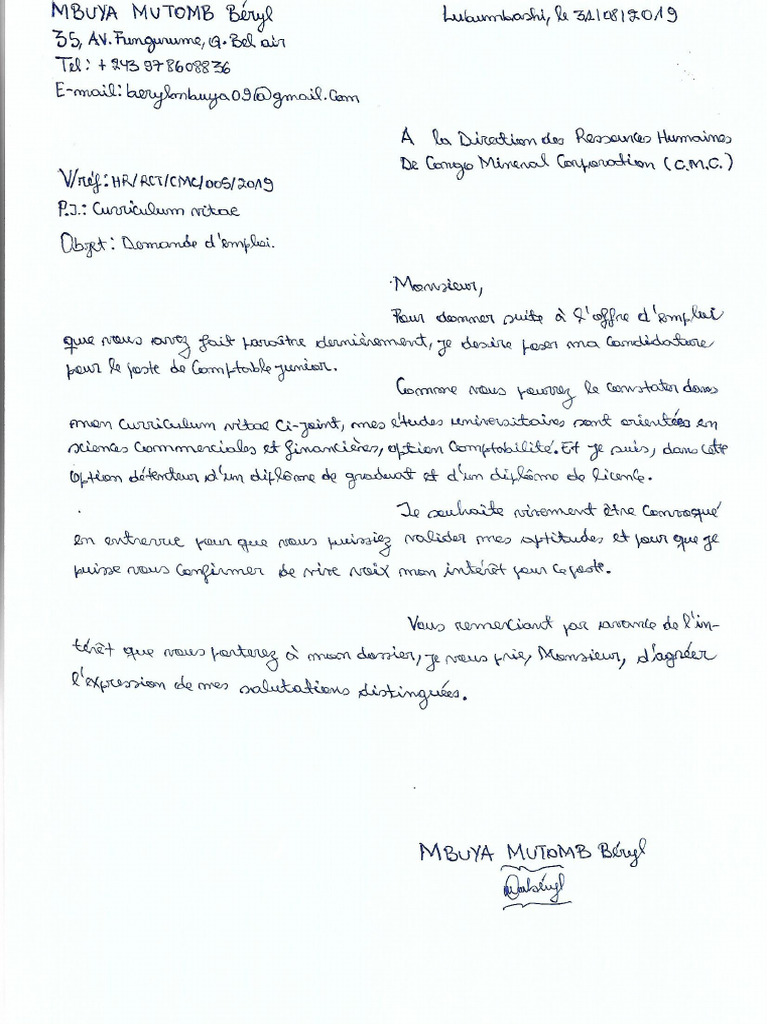 MBUYA MUTOMB Béryl
Lubumbashi, le 31/08/2019
35, Av. Fungurume, Q. Bel air
Tél: +243 978608836
E-mail: berylmbuya09@gmail.com
A la Direction des Ressources Humaines
De Congo Mineral Corporation (C.M.C.)
V/réf: HR/RCT/CMC/005/2019
P.J.: Curriculum vitae
Objet: Demande d'emploi.
Monsieur,
Pour donner suite à l'offre d'emploi
que vous avez fait paraître dernièrement, je desire poser ma candidature
pour le poste de Comptable junior.
Comme vous pourrez le constater dans
mon curriculum vitae ci-joint, mes études universitaires sont orientées en
sciences Commerciales et financières, option Comptabilité. Et je suis, dans cette
option détenteur d'un diplôme de graduat et d'un diplôme de licence.
Je souhaite vivement être convoqué
en entrevue pour que vous puissiez valider mes aptitudes et pour que je
puisse vous confirmer de vive voix mon intérêt pour ce poste.
Vous remerciant par avance de l'in-
térêt que vous porterez à mon dossier, je vous prie, Monsieur, d'agréer
l'expression de mes salutations distinguées.
MBUYA MUTOMB Béryl